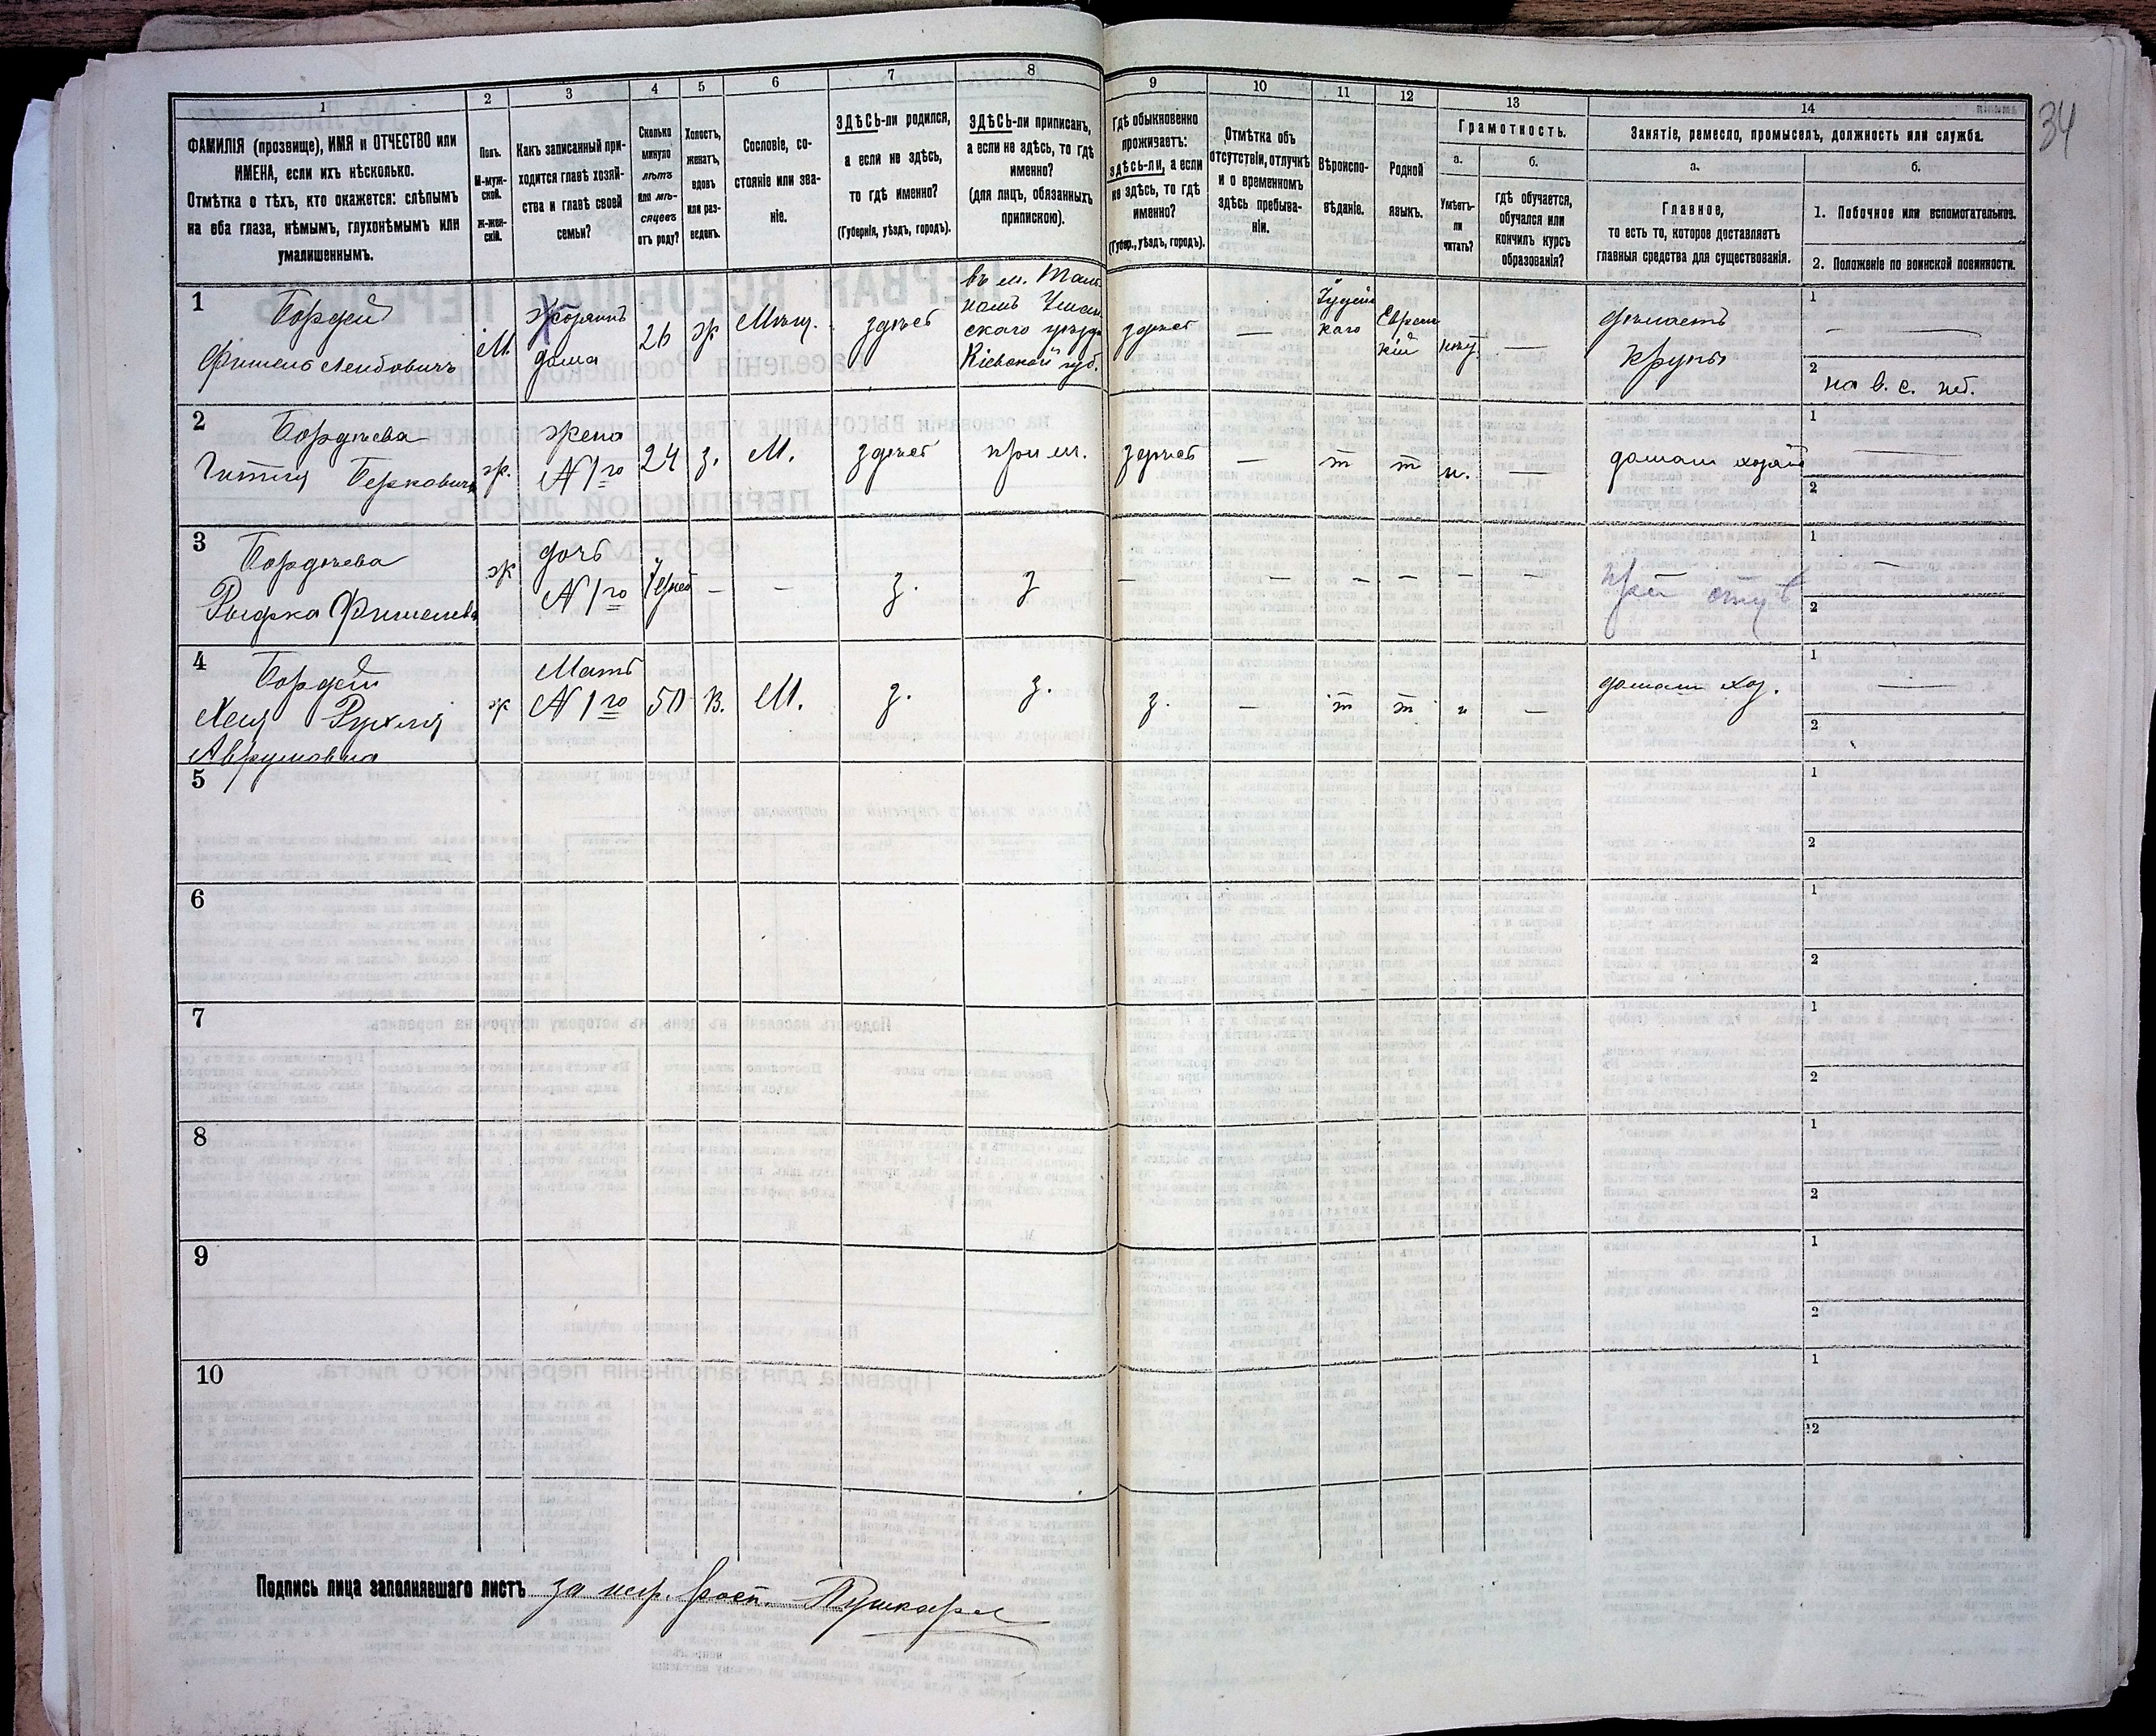 34
1
ФАМИЛІЯ (прозвище), ИМЯ и ОТЧЕСТВО или
ИМЕНА, если ихъ нѣсколько.
Отмѣтка о тѣхъ, кто окажется: слѣпымъ
на оба глаза, нѣмымъ, глухонѣмымъ или
умалишеннымъ.
2
Полъ.
М-муж-
ской.
Ж-жен-
скій.
3
Какъ записанный при-
ходится главѣ хозяй-
ства и главѣ своей
семьи?
4
Сколько
минуло
лѣтъ
или мѣ-
сяцевъ
отъ роду?
5
Холостъ,
женатъ,
вдовъ
или раз-
веденъ.
6
Сословіе, со-
стояніе или зва-
ніе.
7
ЗДѢСЬ-ли родился,
а если не здѣсь,
то гдѣ именно?
(Губернія, уѣздъ, городъ).
8
ЗДѢСЬ-ли приписанъ,
а если не здѣсь, то гдѣ
именно?
(для лицъ, обязанныхъ
припискою).
9
Гдѣ обыкновенно
проживаетъ:
здѣсь-ли, а если
не здѣсь, то гдѣ
именно?
(Губер., уѣздъ, городъ).
10
Отмѣтка объ
отсутствіи, отлучкѣ
и о временномъ
здѣсь пребыва-
ніи.
11
Вѣроиспо-
вѣданіе.
12
Родной
языкъ.
13
Грамотность.
а.
Умѣетъ-
ли
читать?
б.
гдѣ обучается,
обучался или
кончилъ курсъ
образованія?
14
Занятіе, ремесло, промыселъ, должность или служба.
а.
Главное,
то есть то, которое доставляетъ
главныя средства для существованія.
б.
1. Побочное или вспомогательное.
2. Положеніе по воинской повинности.
1
Бордей
Фишель Лейбовичъ
М
Хозяинъ
дома
26
ж
Мѣщ.
здѣсь
въ м. Таль
номъ Уман
скаго уѣзда
Кіевской губ.
здѣсь
—
Іудейс
каго
Еврей
кій
—
дѣлаетъ
крупы
1
—
2
на в. с. нѣ.
2
Бордѣева
Гитля Берковна
ж.
жена
№ 1го
24
з.
М.
здѣсь
при м.
здѣсь
—
т
т
н.
—
домаш хозяй
1
—
2
3
Бордѣева
Рыфка Фишелева
ж
дочь
№ 1го
—
—
з.
з
—
—
—
—
—
—
при отцѣ
1
—
2
4
Бордей
Хая Рухля
Аврумовна
ж
Мать
№ 1го
50
в.
М.
з.
з.
з.
—
т
т
"
—
домаш хоз.
1
—
2
5
1
2
6
1
2
7
1
2
8
1
2
9
1
2
10
1
2
Подпись лица заполнявшаго листъ за негр. росп. Пушкарь